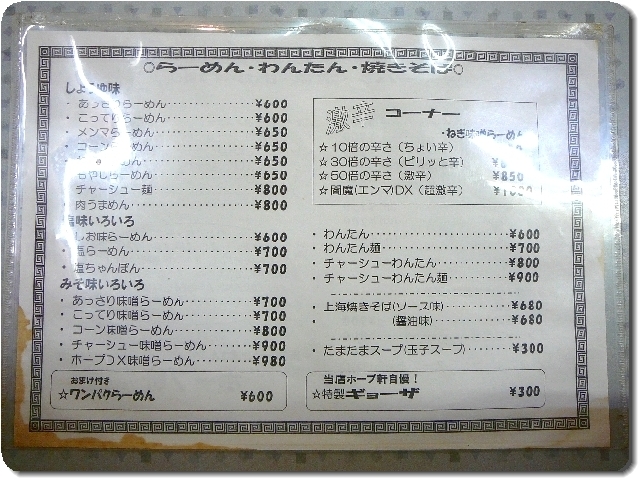 らーめん・わんたん・焼きそば
しょうゆ味
・あっさりらーめん・・・・・・¥600
・こってりらーめん・・・・・・¥600
・メンマらーめん・・・・・・¥650
・コーンらーめん・・・・・・¥650
らーめん・・・・・・¥650
・もやしらーめん・・・・・・¥650
・チャーシュー麺・・・・・・¥800
・肉うまめん・・・・・・¥800
塩味いろいろ
・しお味らーめん・・・・・・¥600
・塩らーめん・・・・・・¥700
・塩ちゃんぽん・・・・・・¥700
みそ味いろいろ
・あっさり味噌らーめん・・・・・・¥700
・こってり味噌らーめん・・・・・・¥700
・コーン味噌らーめん・・・・・・¥800
・チャーシュー味噌らーめん・・・・・・¥900
・ホープDX味噌らーめん・・・・・・¥980
おまけ付き
☆ワンパクらーめん ¥600
激辛コーナー
・ねぎ味噌らーめん
☆10倍の辛さ(ちょい辛)
☆30倍の辛さ(ピリッと辛)
☆50倍の辛さ(激辛) ¥850
☆閻魔(エンマ)DX(超激辛)
・わんたん・・・・・・¥600
・わんたん麺・・・・・・¥700
・チャーシューわんたん・・・・・・¥800
・チャーシューわんたん麺・・・・・・¥900
・上海焼きそば(ソース味)・・・・・・¥680
・(醤油味)・・・・・・¥680
・たまたまスープ(玉子スープ)・・・・・・¥300
当店ホープ軒自慢!
☆特製ギョーザ ¥300